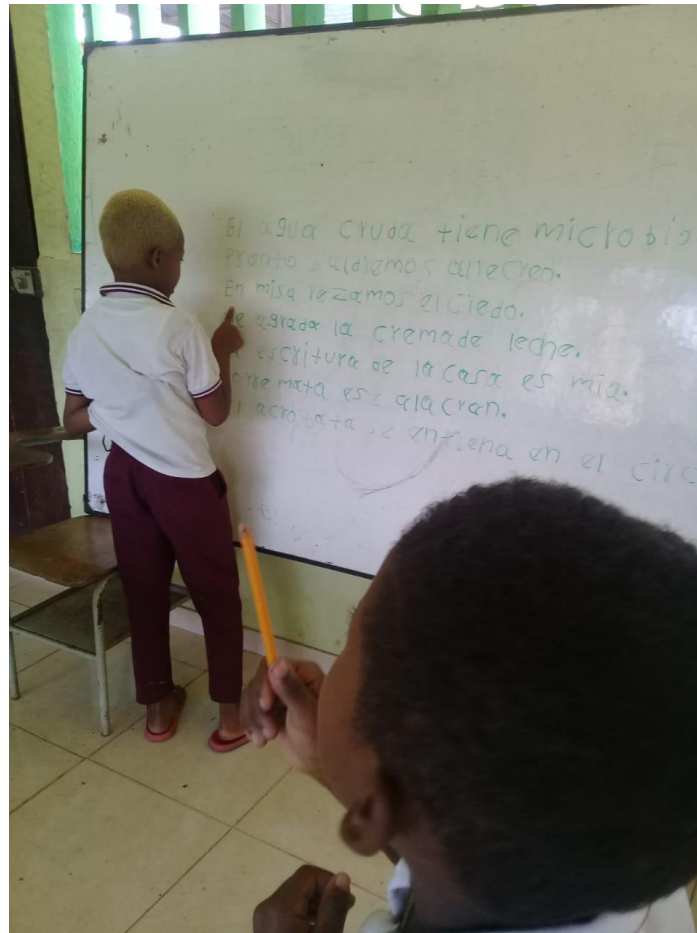 El agua cruda tiene microbio
Pronto saldremos al recreo.
En misa rezamos el Credo.
agrada la crema de leche.
escritura de la casa es mia.
mata ese alacran.
acrobata se entrena en el circ